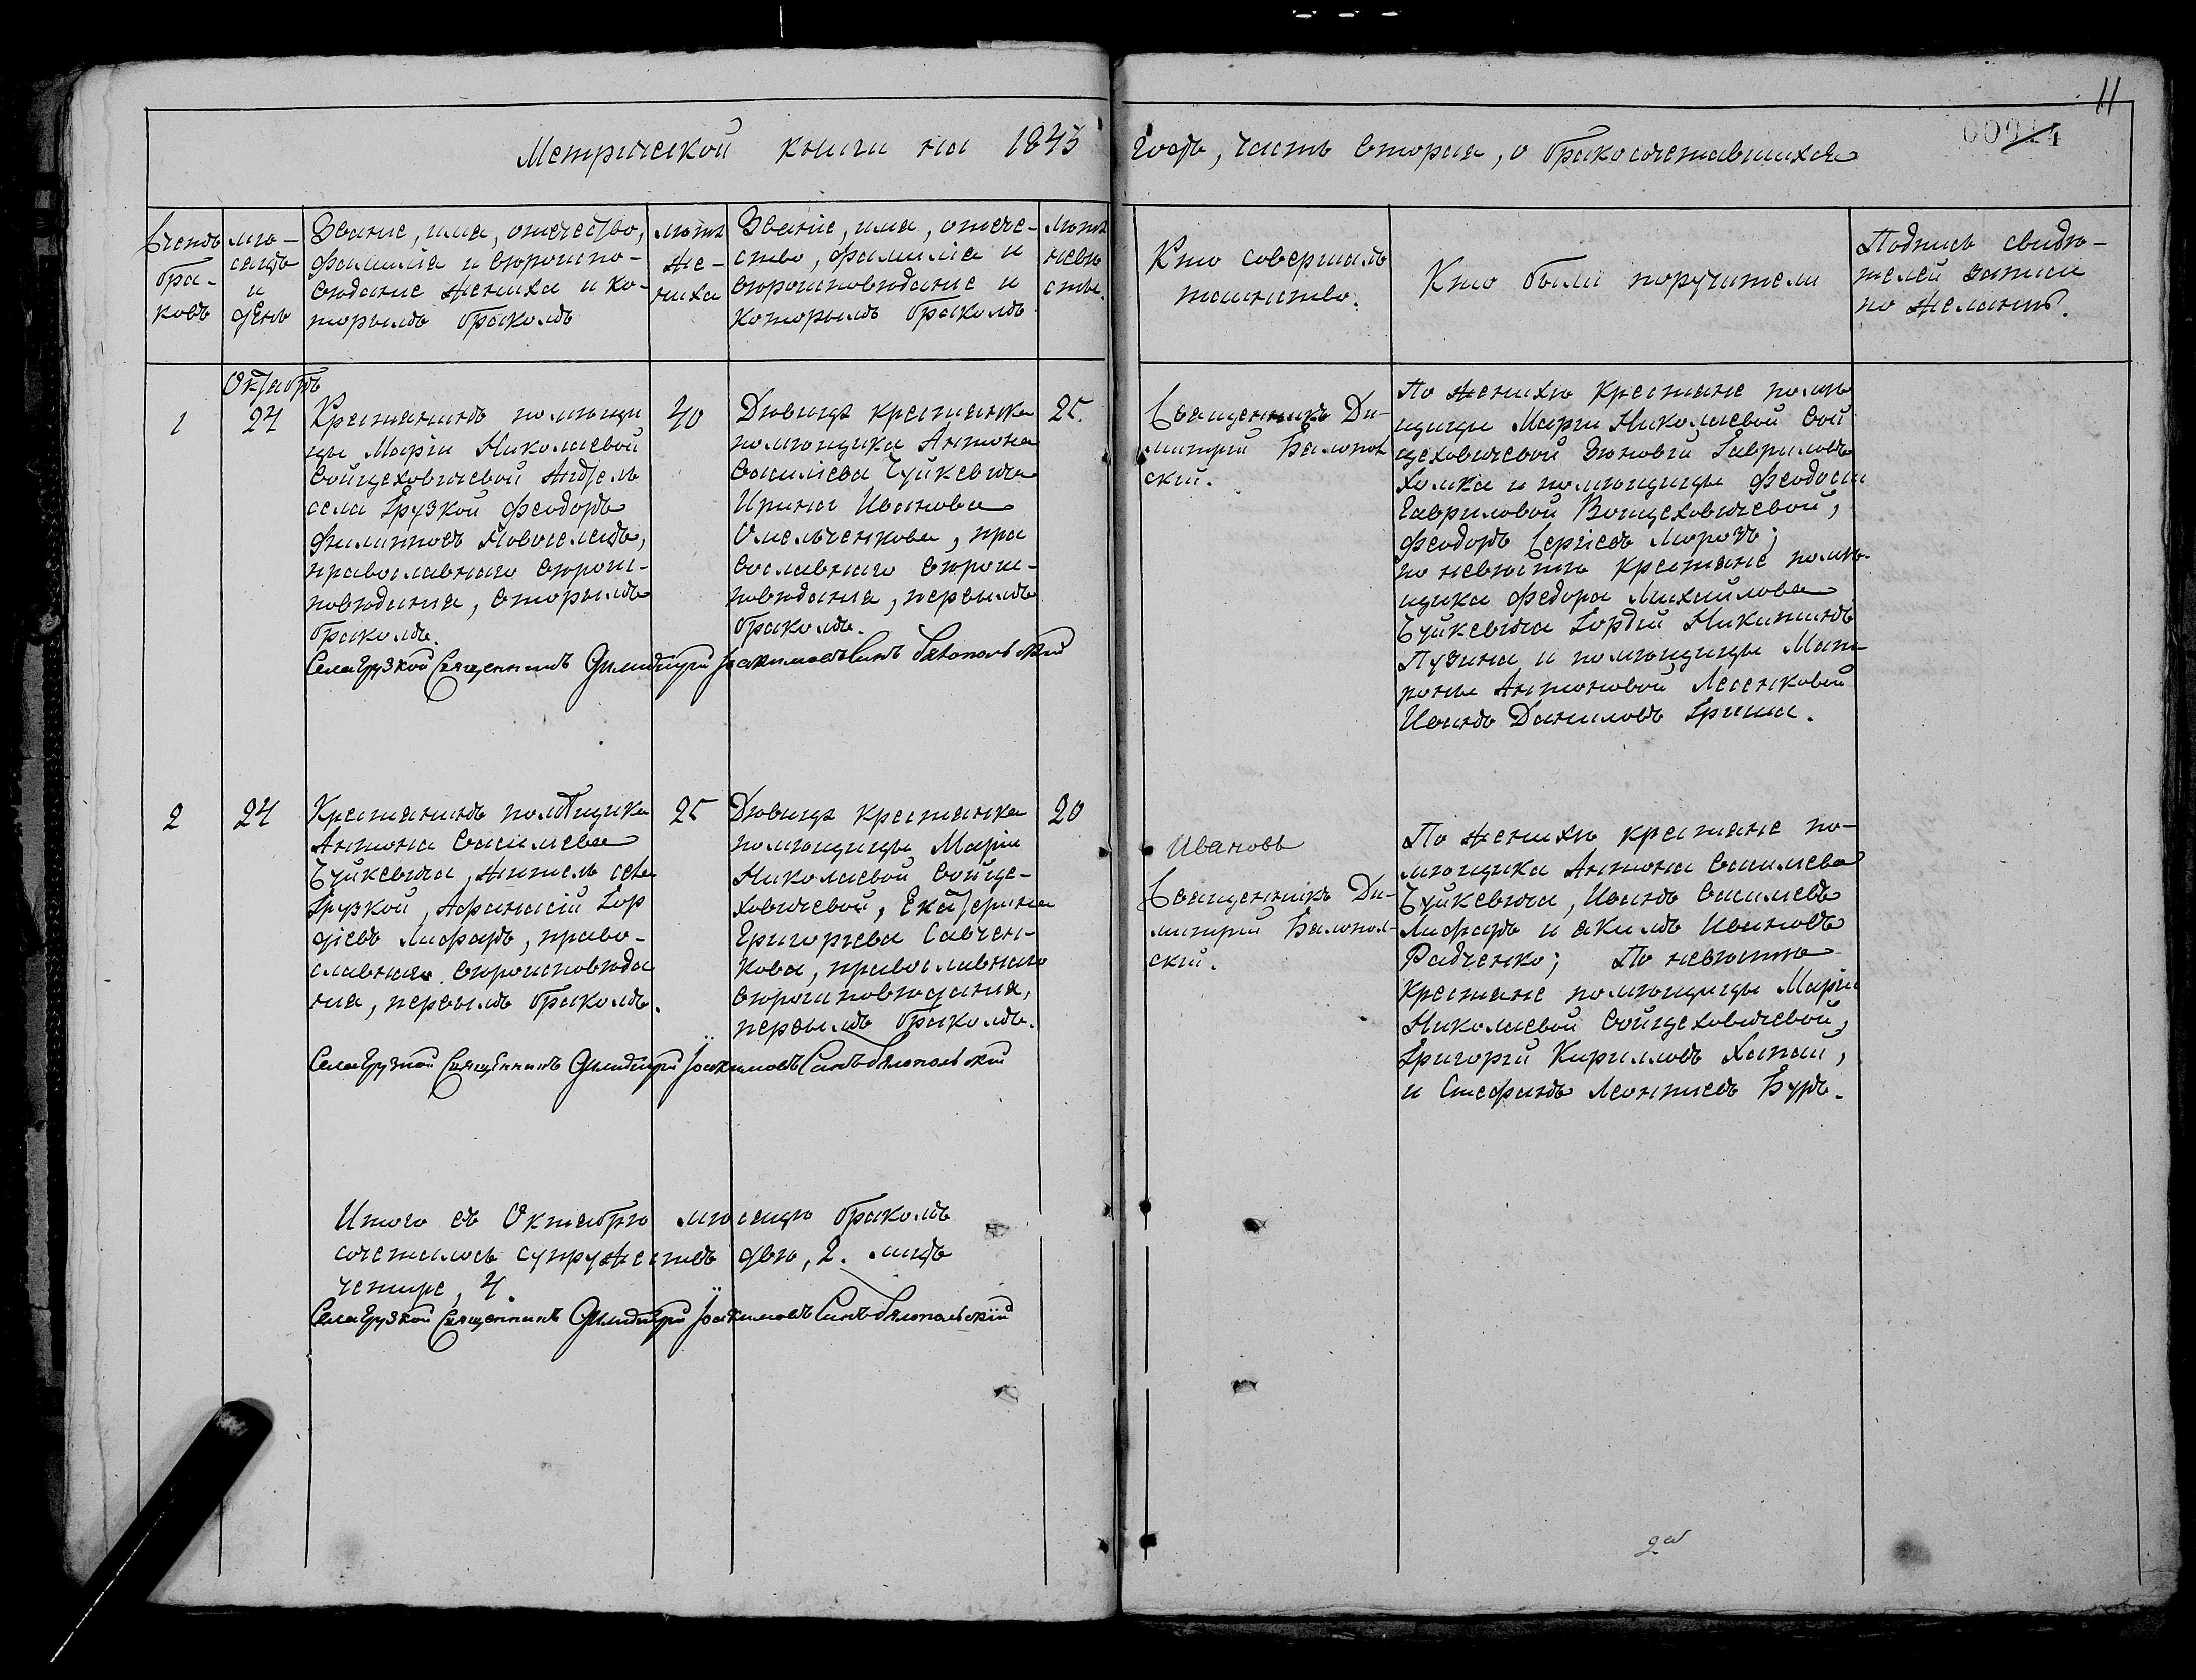 11
00314
Метрической книги на 1843
года, часть вторая, о бракосочетавшихся
Счетъ
бра-
ковъ
мѣ-
сяцъ
и
день
Званіе, имя, отечество,
фамилія и вѣроиспо-
вѣданіе жениха и ко-
торымъ бракомъ
лѣта
же-
ниха
Званіе, имя, отече-
ство, фамилія и
вѣроисповѣданіе и
которымъ бракомъ
лѣта
невѣ
сты.
Кто совершалъ
таинство.
Кто были поручители
Подпись свидѣ-
телей записи
по желанію.
Октябрь
1
24
Крестьянинъ помѣщи
цы Маріи Николаевой
Войцеховичевой житель
села Грузкой Феодоръ
Филиповъ Новоселецъ,
православнаго вѣроис-
повѣданія, вторымъ
бракомъ.
40
Дѣвица крестьянка
помѣщика Антона
Васильева Чуйкевича
Ирина Иванова
Омельченкова, пра
вославнаго вѣроис-
повѣданія, первымъ
бракомъ.
25.
Села Грузкой Священникъ Димитрій Іоакимовъ Синъ Бялопольский
Священникъ Ди-
митрій Бялопол
скій.
По женихѣ крестьяне помѣ
щицы Маріи Николаевой Вой
цеховичевой Зѣновій Гавриловъ
Хомка и помѣщицы Феодосіи
Гавриловой Воицеховичевой,
Феодоръ Сергіевъ Морозъ;
по невѣстѣ крестьяне помѣ-
щика Федора Михайлова
Чуйкевича Гордій Никитинъ
Пузина и помѣщицы Мат-
роны Антоновой Лесенковой
Иванъ Даниловъ Гриша.
2
24
Крестьянинъ помѣщика
Антона Васильева
Чуйкевича, житель села
Грузкой, Афанасій Гор
діевъ Лифаръ, право-
славнаго вѣроисповѣда
нія, первымъ бракомъ.
25
Дѣвица крестьянка
помѣщицы Маріи
Николаевой Войце-
ховичевой, Екатерина
Григорьева Савчен-
кова, православнаго
вѣроиповѣданія,
первымъ бракомъ.
20
Села Грузкой Священникъ Димитрій Іоакимовъ Синъ Бялопольский
Ивановъ
Священникъ Ди-
митрій Бялопол-
скій.
По женихѣ крестьяне по-
мѣщика Антона Васильева
Чуйкевича, Иванъ Васильевъ
Лифаръ и Якимъ Ивановъ
Радченко; По невѣстѣ
крестьяне помѣщицы Маріи
Николаевой Войцеховичевой,
Григорій Кирилловъ Хапай,
и Стефанъ Леонтіевъ Буръ.
Итого въ Октябрѣ мѣсяцѣ бракомъ
сочеталось супружествъ двѣ, 2. лицъ
четыре, 4.
Села Грузкой Священникъ Димитрій Іоакимовъ Синъ Бялопольскій